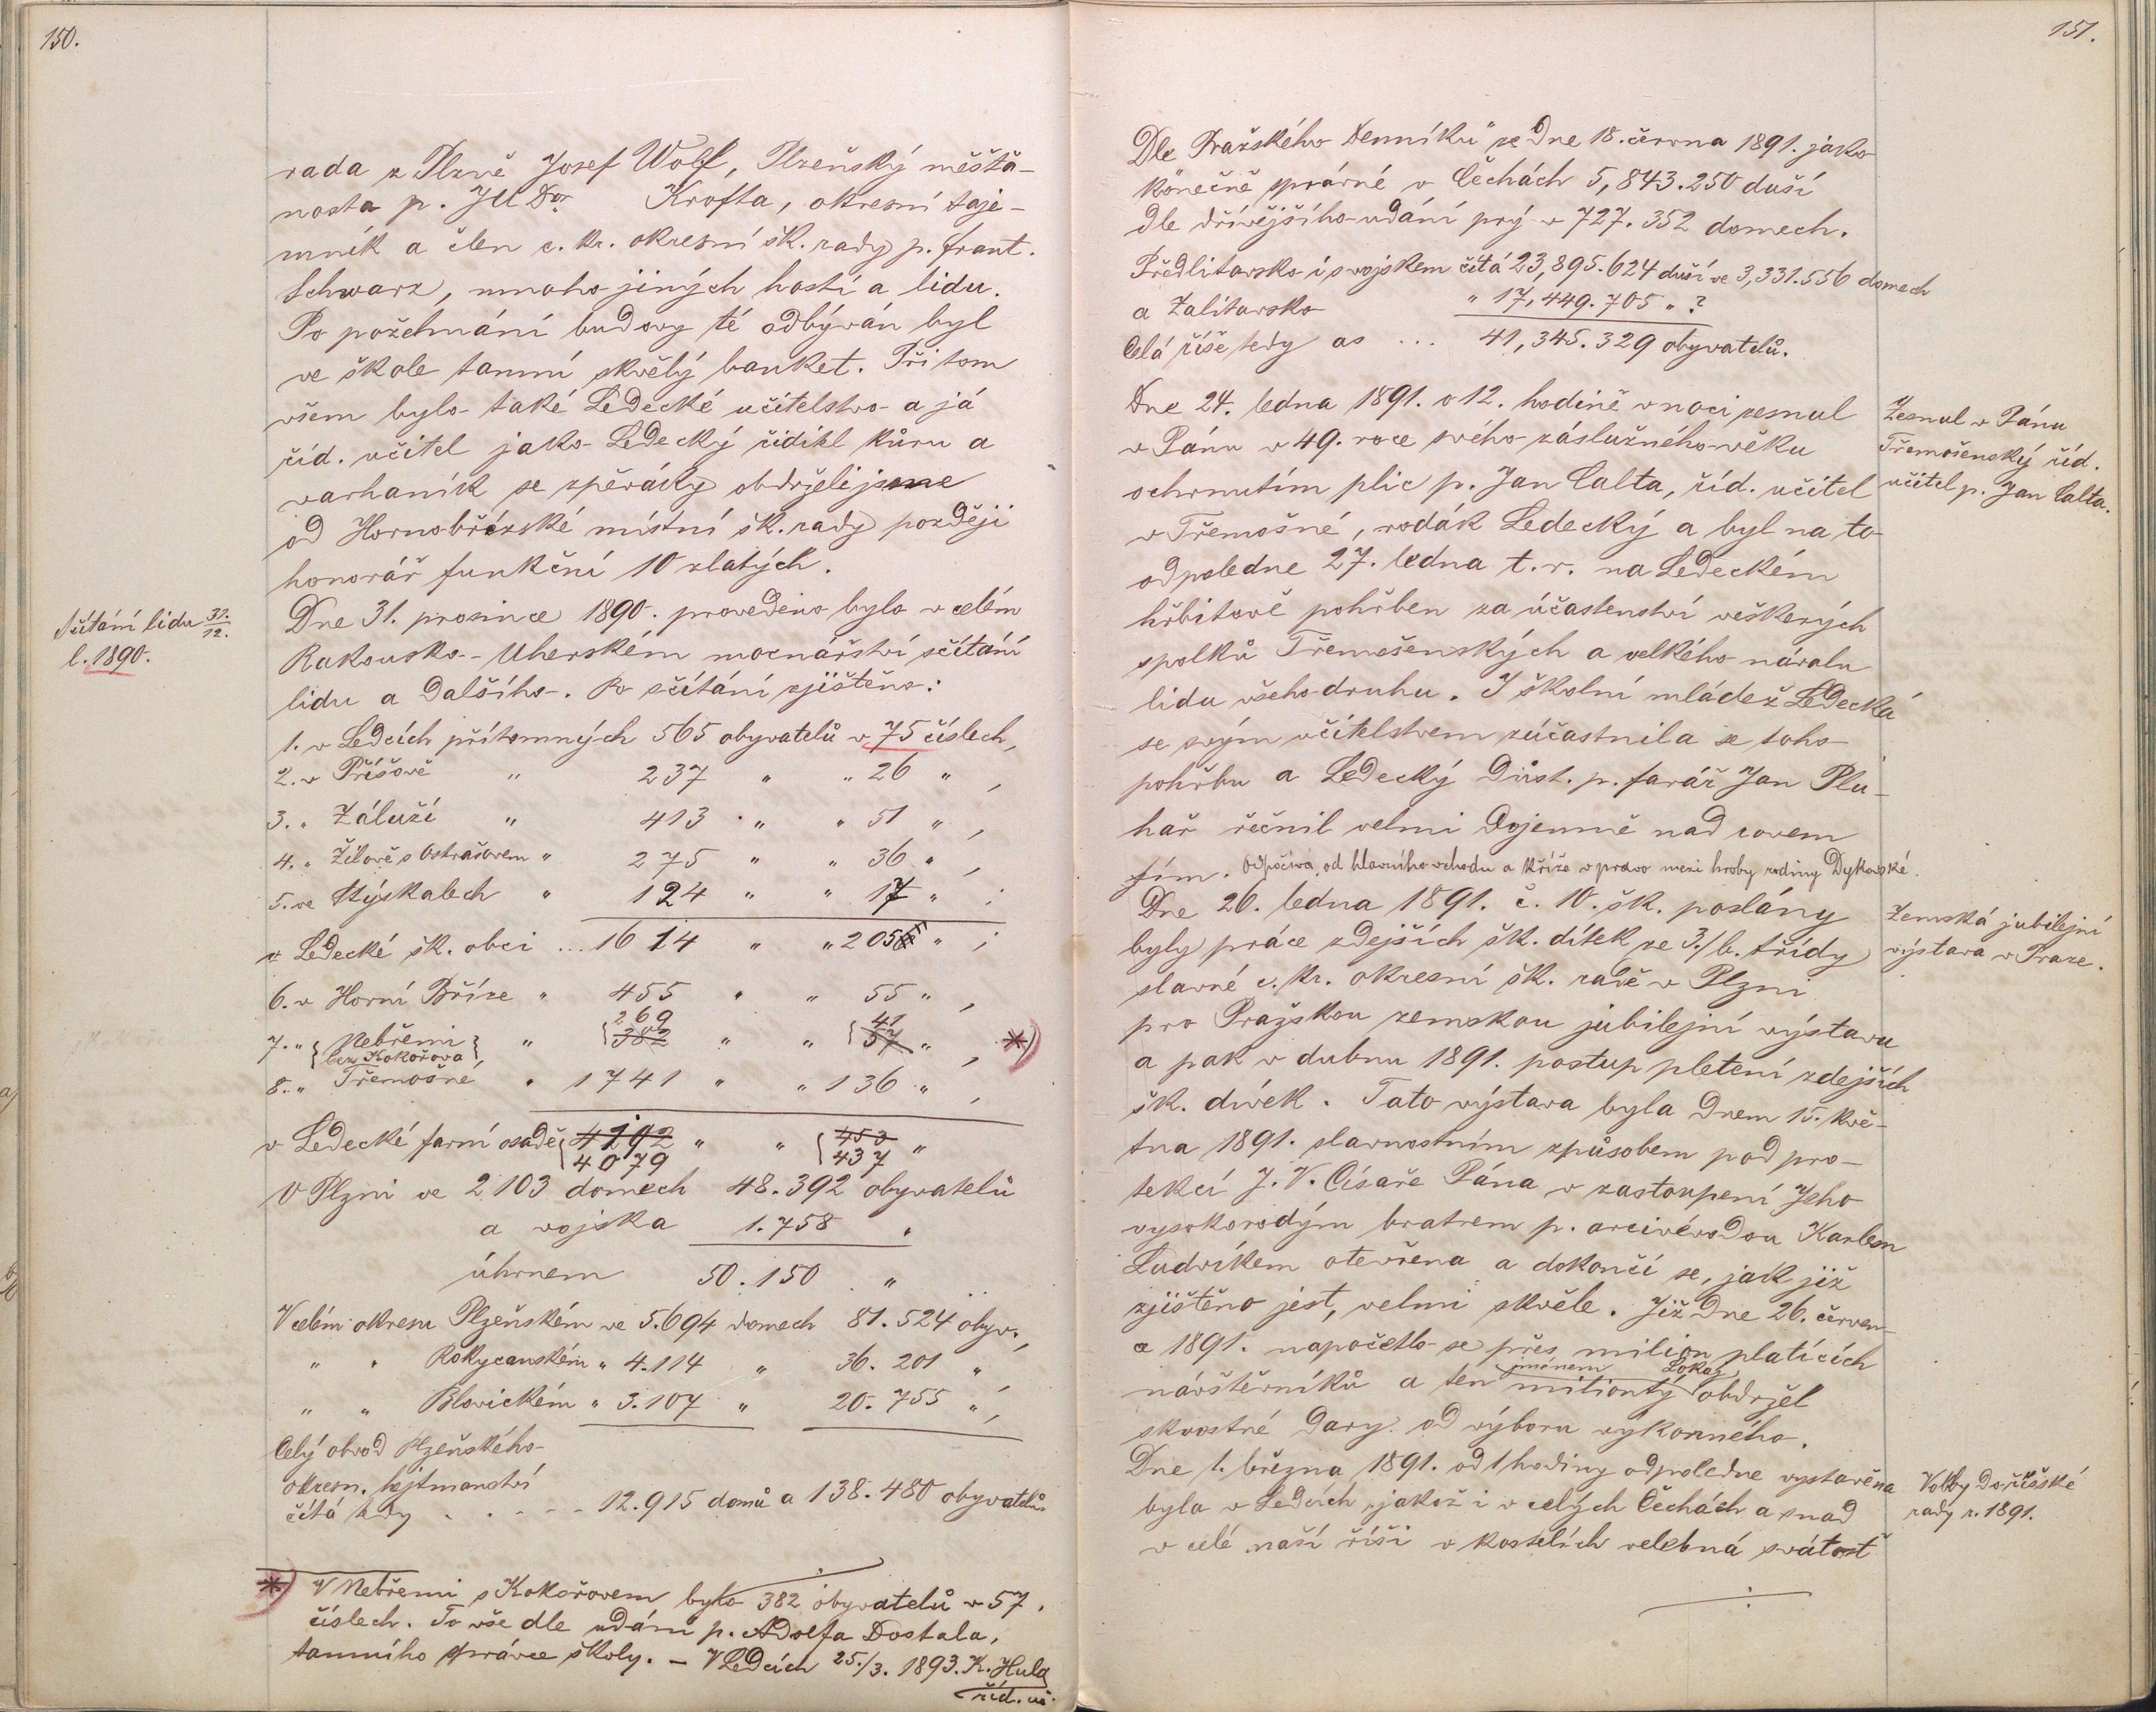 150.
rada z Plzně Josef Wolf, Plzeňský měšťa-
nosta p. JUDor. Krofta, okresní taje-
mník a člen c. kr. okresní šk. rady p. Frant.
Schwarz, mnoho jiných hostí a lidu.
Po požehnání budovy té odbýván byl
ve škole tamní skvělý banket. Při tom
všem bylo také Ledecké učitelstvo a já
říd. učitel jako Ledecký řiditel kůru a
varhaník se zpěváky obdrželi jsme
od Hornobřízské místní šk. rady později
honorář funkční 10 zlatých.
Sčítání lidu 31./12.
l. 1890.
Dne 31. prosince 1890. provedeno bylo v celém
Rakousko-Uherském mocnářství sčítání
lidu a dalšího. Po sčítání zjištěno:
1. v Ledcích přítomných 565 obyvatelů v 75 číslech,
2. v Příšově " 237 " " 26 " ,
3. " Záluží " 413 " " 51 " ,
4. " Žilově s Ostrašovem " 275 " " 36 " ,
5. ve Stýskalech " 124 " " 17 " ;
v Ledecké šk. obci ... 1614 " " 205 " ;
6. v Horní Bříze " 455 " " 55 " ,
269 41
7. " { Nebřemi } " { 382 " " { 57 " , *)
bez Kokořova
8. " Třemošné " 1741 " " 136 " ,
v Ledecké farní osadě { 4192 " " { 453 "
4079 437
V Plzni ve 2103 domech 48.392 obyvatelů
a vojska 1.758 "
úhrnem 50.150 "
V celém okresu Plzeňském ve 5.694 domech 81.524 obyv.,
" " Rokycanském " 4.114 " 36.201 " ,
" " Blovickém " 3.107 " 20.755 " ,
Celý obvod Plzeňského
okresn. hejtmanství
čítá tedy . . - - - 12.915 domů a 138.480 obyvatelů.
*) V Nebřemi s Kokořovem bylo 382 obyvatelů v 57.
číslech. To vše dle udání p. Adolfa Dostala,
tamního správce školy. – V Ledcích 25./3. 1893. K. Hula
říd. uč.
151.
Dle "Pražského Denníku" ze dne 18. června 1891. jako
konečně správné v Čechách 5,843.250 duší
dle dřívějšího udání prý v 727.352 domech.
Předlitavsko i s vojskem čítá 23,895.624 duší ve 3,331.556 domech
a Zalitavsko " 17,449.705 " ?
Celá říše tedy as ... 41,345.329 obyvatelů.
Dne 24. ledna 1891. o 12. hodině v noci zesnul
v Pánu v 49. roce svého záslužného věku
ochrnutím plic p. Jan Calta, říd. učitel
v Třemošné, rodák Ledecký a byl na to
odpoledne 27. ledna t. r. na Ledeckém
hřbitově pohřben za účastenství veškerých
spolků Třemošenských a velkého návalu
lidu všeho druhu. I školní mládež Ledecká
se svým učitelstvem zúčastnila se toho
pohřbu a Ledecký důst. p. farář Jan Plu-
hař řečnil velmi dojemně nad rovem
jím. Odpočívá od hlavního vchodu a kříže v pravo mezi hroby rodiny Dykovské.
Zesnul v Pánu
Třemošenský říd.
učitel p. Jan Calta.
Dne 26. ledna 1891. č. 10. šk. poslány
byly práce zdejších šk. dítek ze 3./b. třídy
slavné c. kr. okresní šk. radě v Plzni
pro Pražskou zemskou jubilejní výstavu
a pak v dubnu 1891. postup pletení zdejších
šk. dívek. Tato výstava byla dnem 15. kvě-
tna 1891. slavnostním způsobem pod pro-
tekcí J. V. Císaře Pána v zastoupení Jeho
vysokorodým bratrem p. arcivévodou Karlem
Ludvíkem otevřena a dokončí se, jak již
zjištěno jest, velmi skvěle. Již dne 26. červen-
a 1891. napočetlo se přes milion platících
jménem Lokaj
návštěvníků a ten miliontý obdržel
skvostné dary od výboru výkonného.
Zemská jubilejní
výstava v Praze.
Dne 1. března 1891. od 1 hodiny odpoledne vystavena
byla v Ledcích, jakož i v celých Čechách a snad
v celé naší říši v kostelích velebná svátost
Volby do říšské
rady r. 1891.